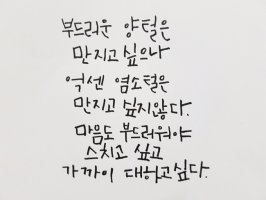 부드리운 양털은
만지고 싶으나
억센 염소털은
만지고 싶지않다.
마음도 부드러워야
스치고 싶고
가까이 대하고싶다.